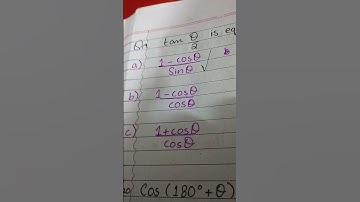 Q4 tan θ/2 is eq
a) (1-cosθ)/Sinθ √
b) (1-cosθ)/cosθ
c) (1+cosθ)/cosθ
Cos (180°+θ)